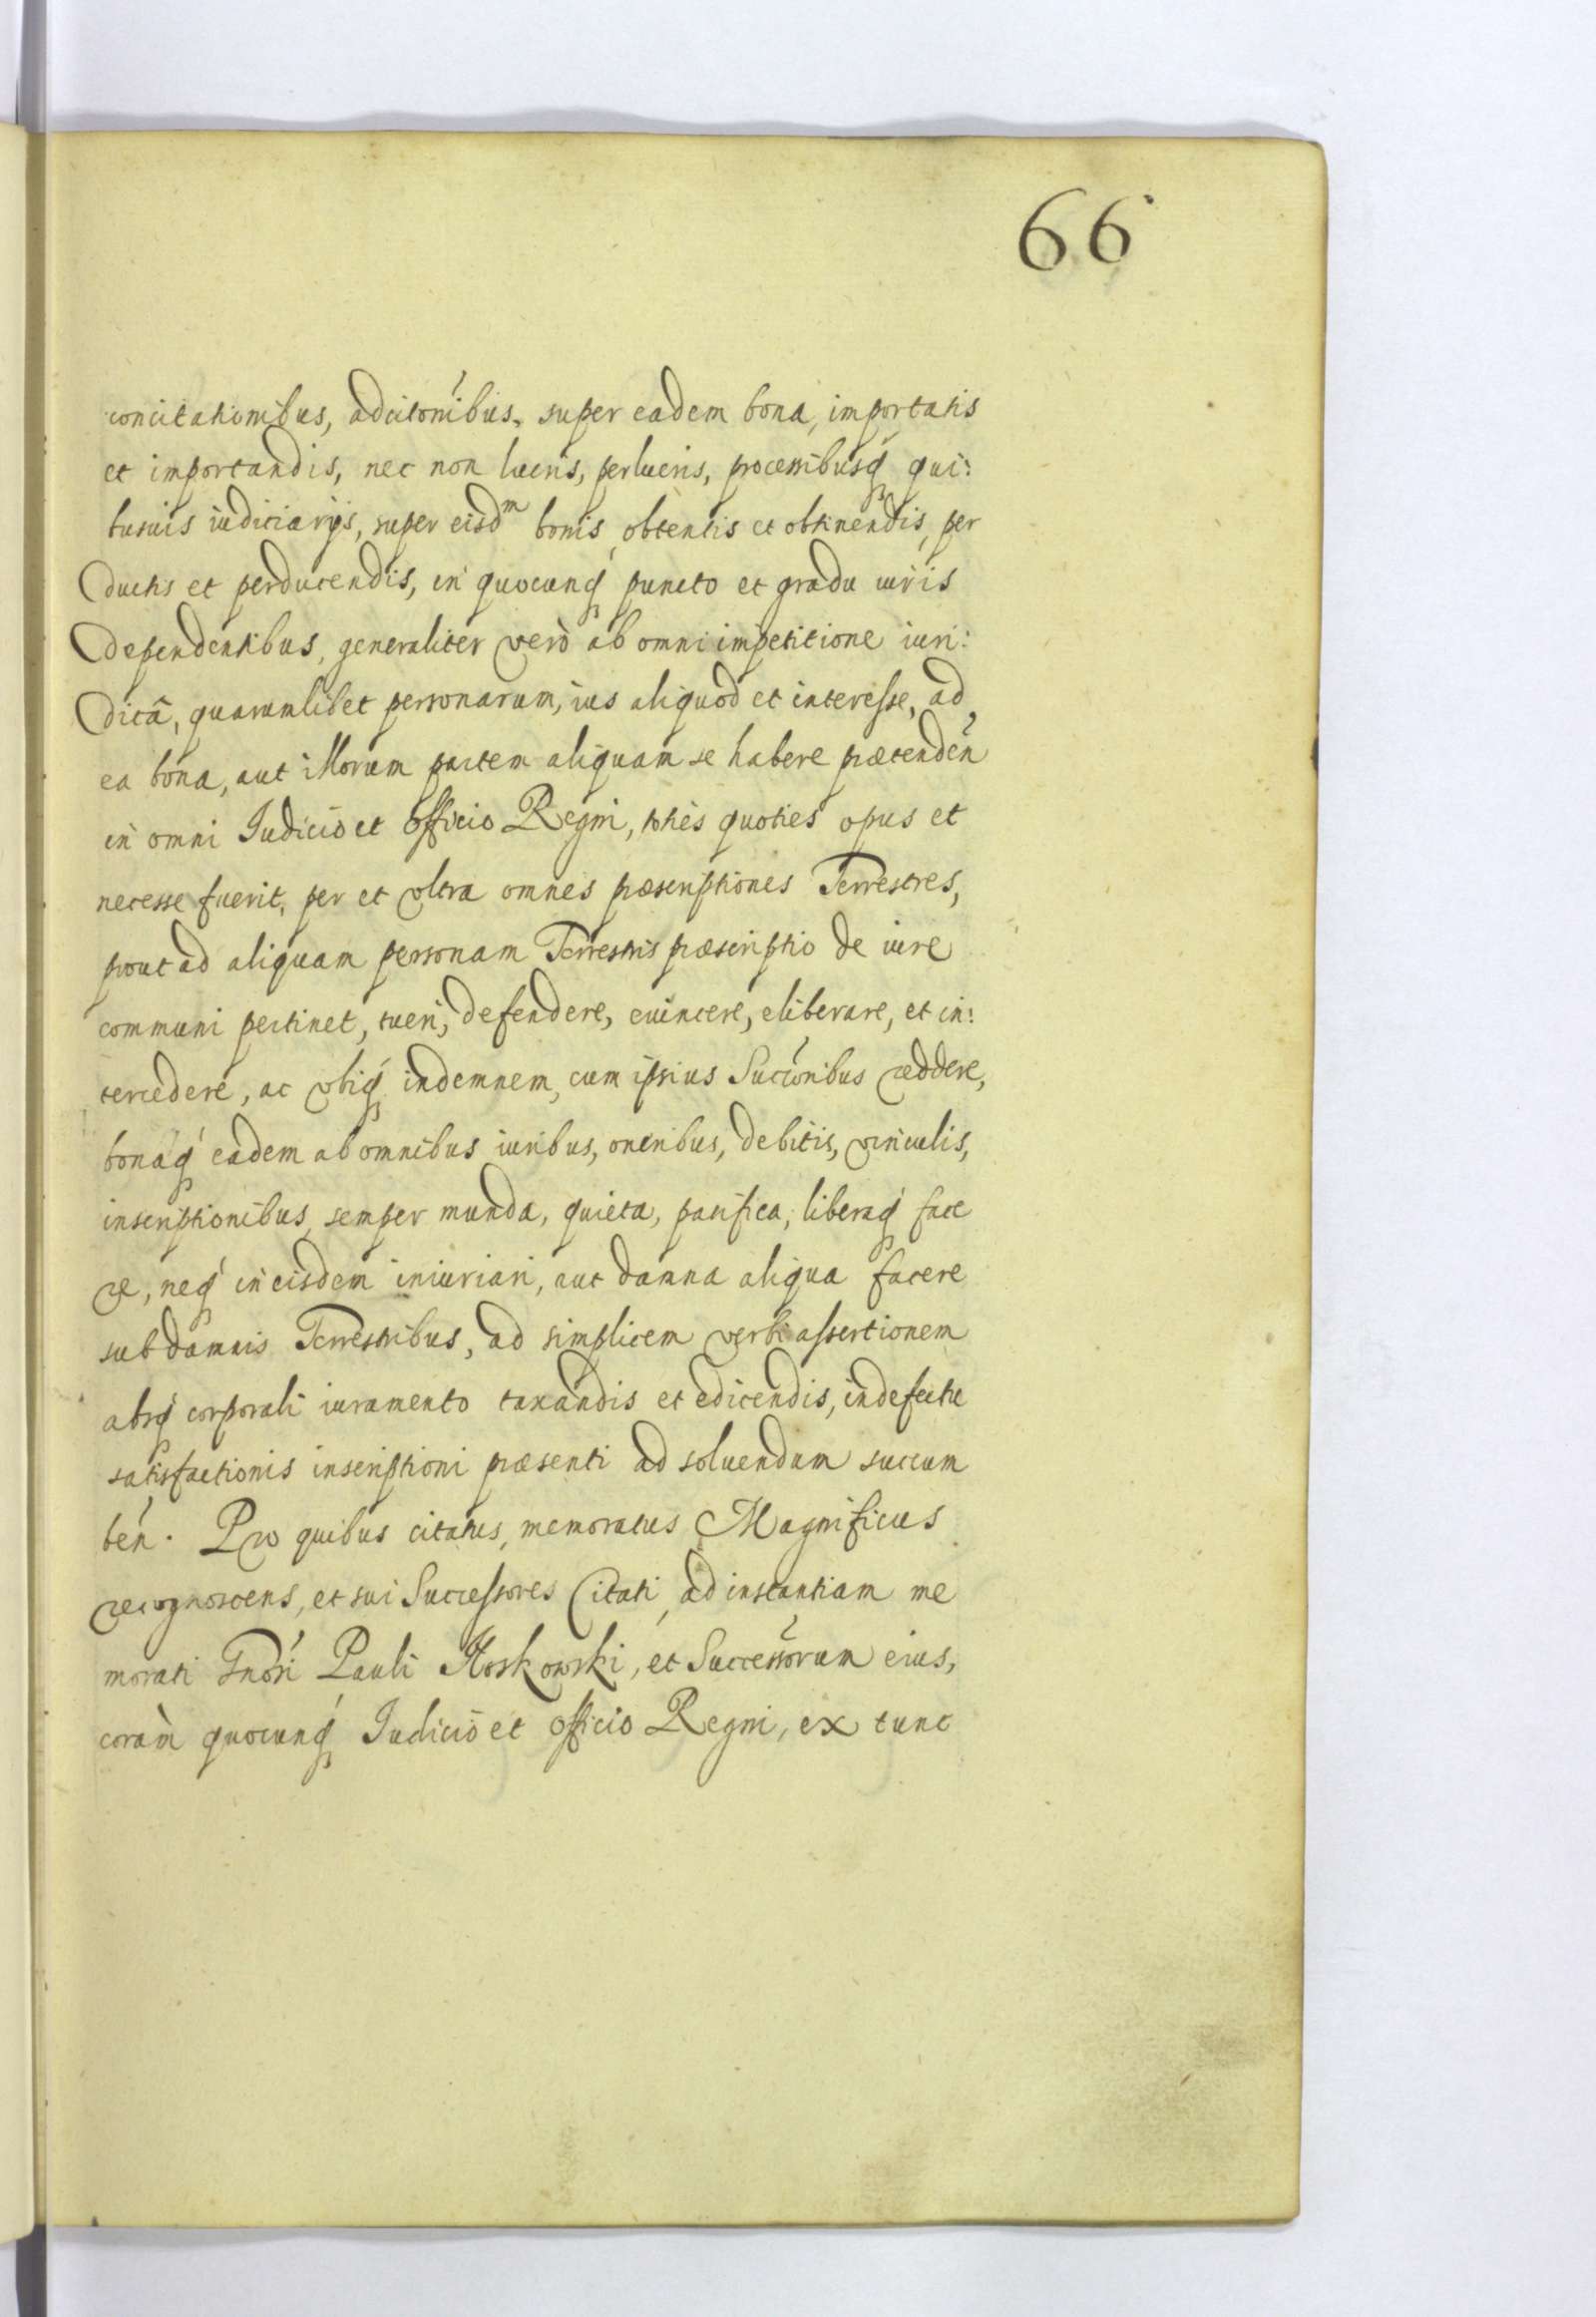 66
concitationibus, adcitoníbus, super eadem bona, importatis
et importandis, nec non lucris, perlucris, processibusq́ qui:
busuis iudiciarijs, super eisdm bonis, obtentis et obtinendis, per
ductis et perducendis, in quocunq́ puncto et gradu iuris
dependentibus, generaliter verò ab omni impetitione iuri:
dicâ, quarumlibet personarum, ius aliquod et interesse, ad
ea bona, aut illorum partem aliquam se habere prætendeń
in omni Iudicio et officio Regni, toties quoties opus et
necesse fuerit, per et vltra omnes præscriptiones Terrestres,
prout ad aliquam personam Terrestris præscriptio de iure
communi pertinet, tueri, defendere, euincere, eliberare, et in:
tercedere, ac vbiq́ indemnem, cum ipsius Succońibus reddere,
bonaq́ eadem ab omnibus iuribus, oneribus, debitis, vinculis,
inscriptionibus, semper munda, quieta, pacifica, liberaq́ face
re, neq́ in eisdem iniuriari, aut damna aliqua facere
sub damnis Terrestribus, ad simplicem verbi assertionem
absq́ corporali iuramento taxandis et edicendis, in defectu
satisfactionis inscriptioni præsenti ad soluendum succum
beń. Pro quibus citatus, memoratus Magnificus
recognoscens, et sui Successores Citati, ad instantiam me
morati Gnośi Pauli Hoskowski, et Successorum eius,
coràm quocunq́ Iudicio et officio Regni, ex tunc